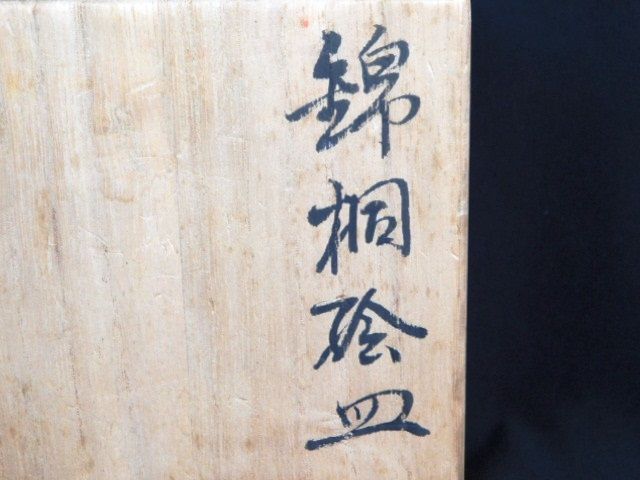 錦桐絵皿